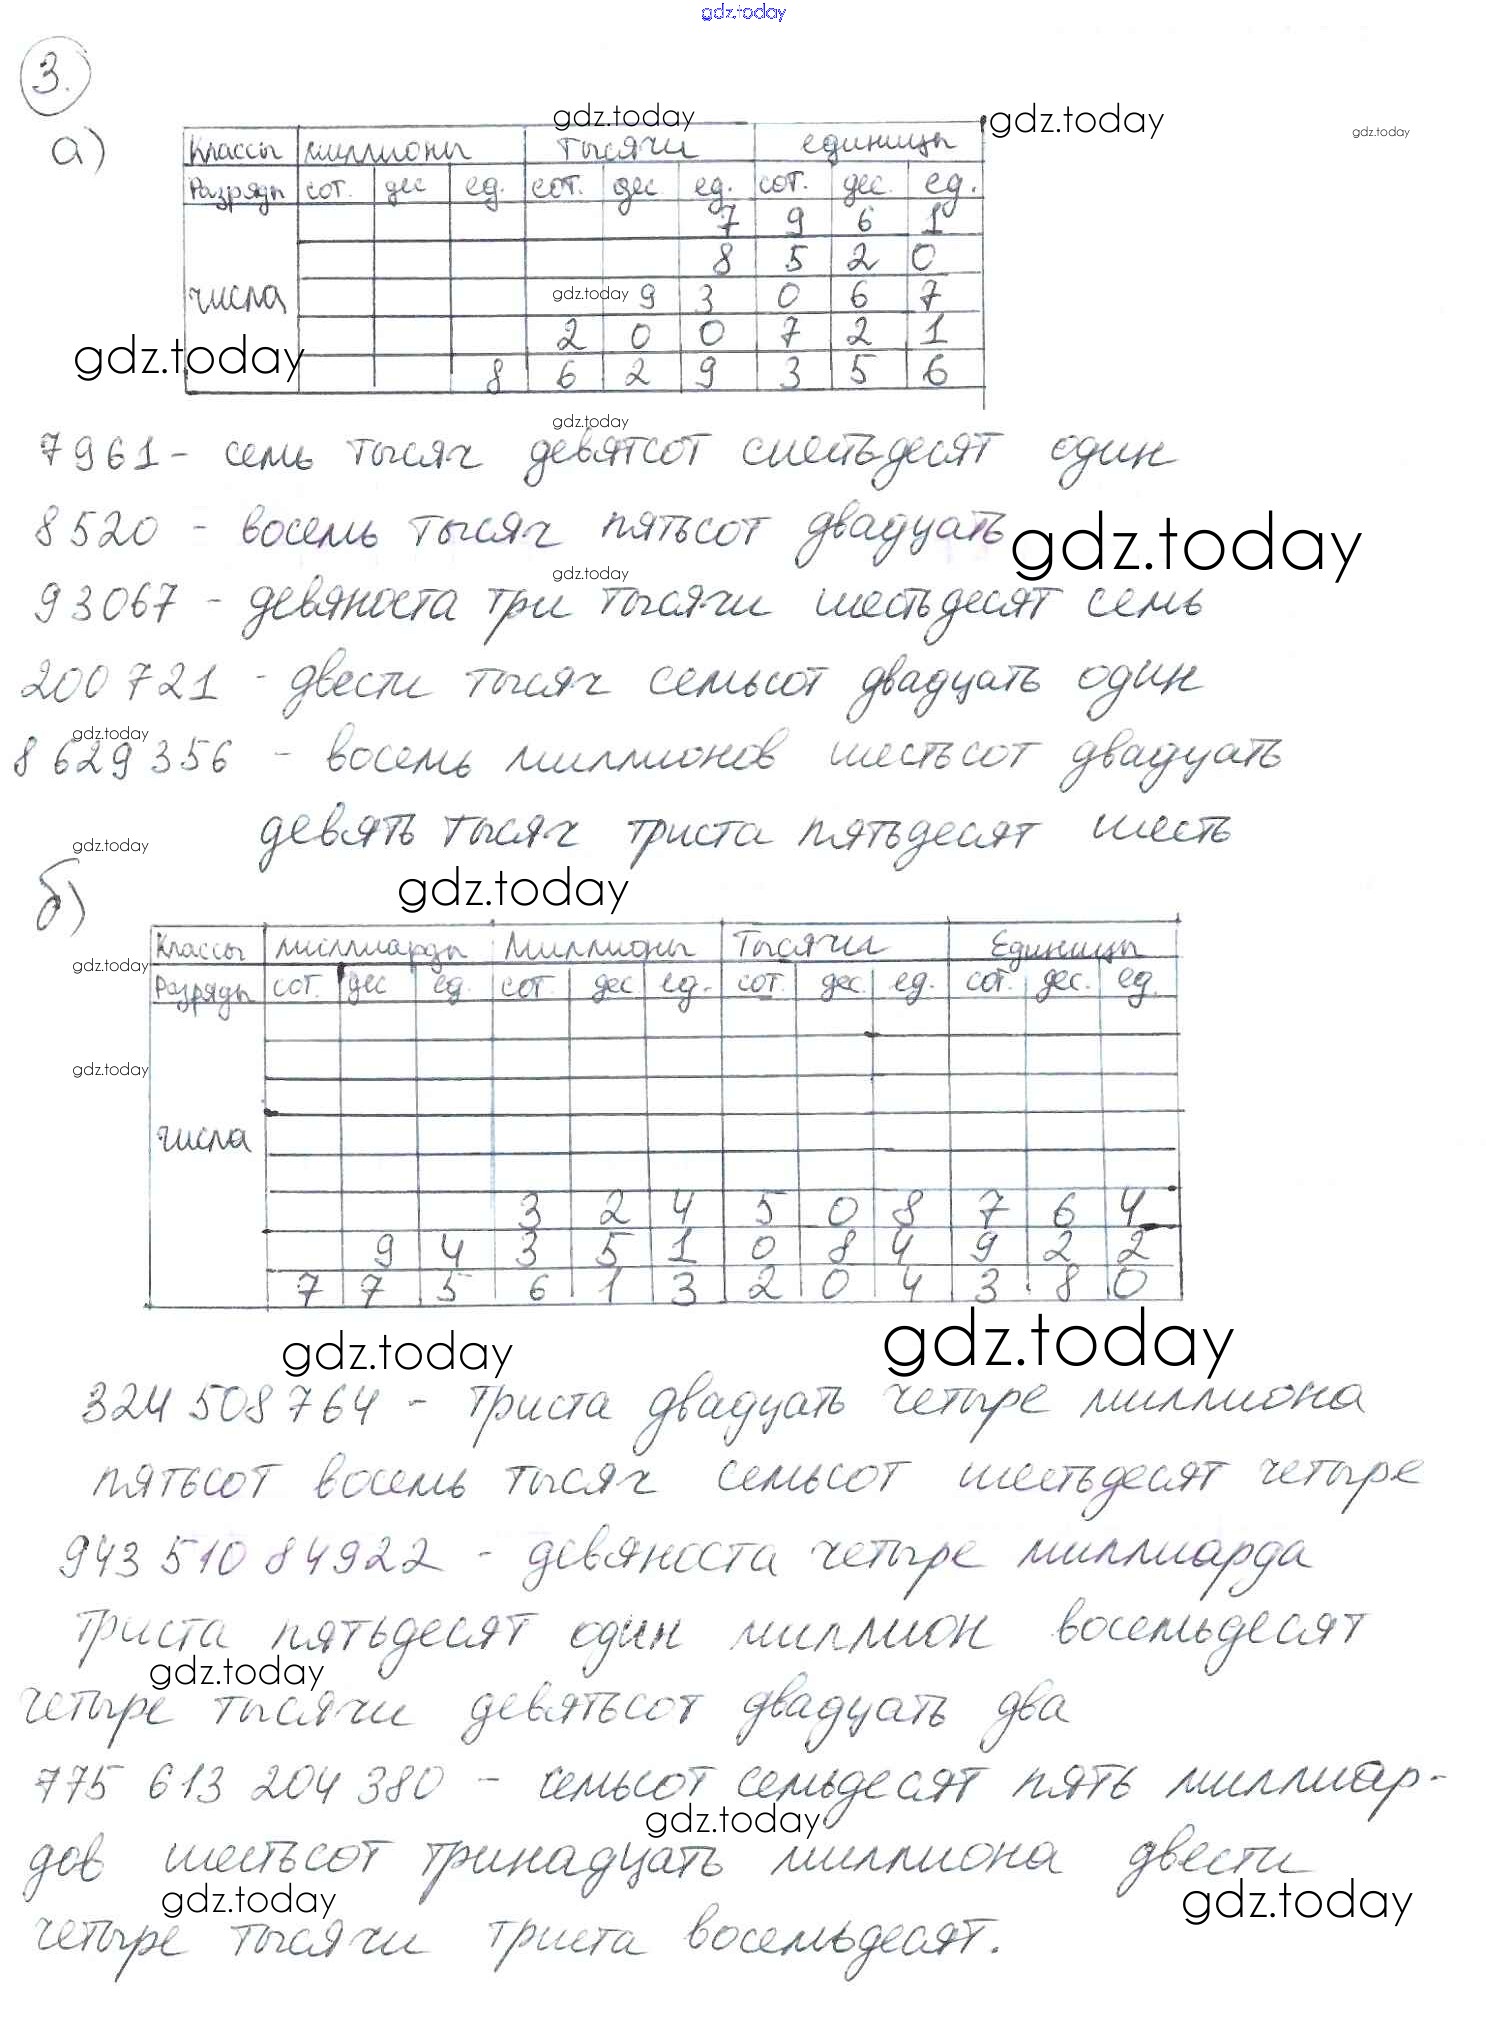 gdz.today
3.
а)
gdz.today gdz.today gdz.today
Классы миллионы тысячи единицы
Разряды сот. дес ед. сот. дес. ед. сот. дес. ед.
7 9 6 1
8 5 2 0
числа gdz.today 9 3 0 6 7
2 0 0 7 2 1
gdz.today
8 6 2 9 3 5 6
gdz.today
7961 - семь тысяч девятсот шестьдесят один
8520 - восемь тысяч пятьсот двадцать gdz.today
gdz.today
93067 - девяноста три тысячи шестьдесят семь
200721 - двести тысяч семьсот двадцать один
gdz.today
8 629 356 - восемь миллионов шестьсот двадцать
девять тысяч триста пятьдесят шесть
gdz.today
б)
gdz.today
Классы миллиарды Миллионы Тысячи Единицы
gdz.today
Разряды сот. дес ед. сот. дес ед. сот. дес. ед. сот. дес. ед.
gdz.today
числа
3 2 4 5 0 8 7 6 4
9 4 3 5 1 0 8 4 9 2 2
7 7 5 6 1 3 2 0 4 3 8 0
gdz.today gdz.today
324 508 764 - триста двадцать четыре миллиона
пятьсот восемь тысяч семьсот шестьдесят четыре
943 510 84922 - девяноста четыре миллиарда
триста пятьдесят один миллион восемьдесят
gdz.today
четыре тысячи девятьсот двадцать два
775 613 204 380 - семьсот семьдесят пять миллиар-
gdz.today
дов шестьсот тринадцать миллиона двести
gdz.today gdz.today
четыре тысячи триста восемьдесят.